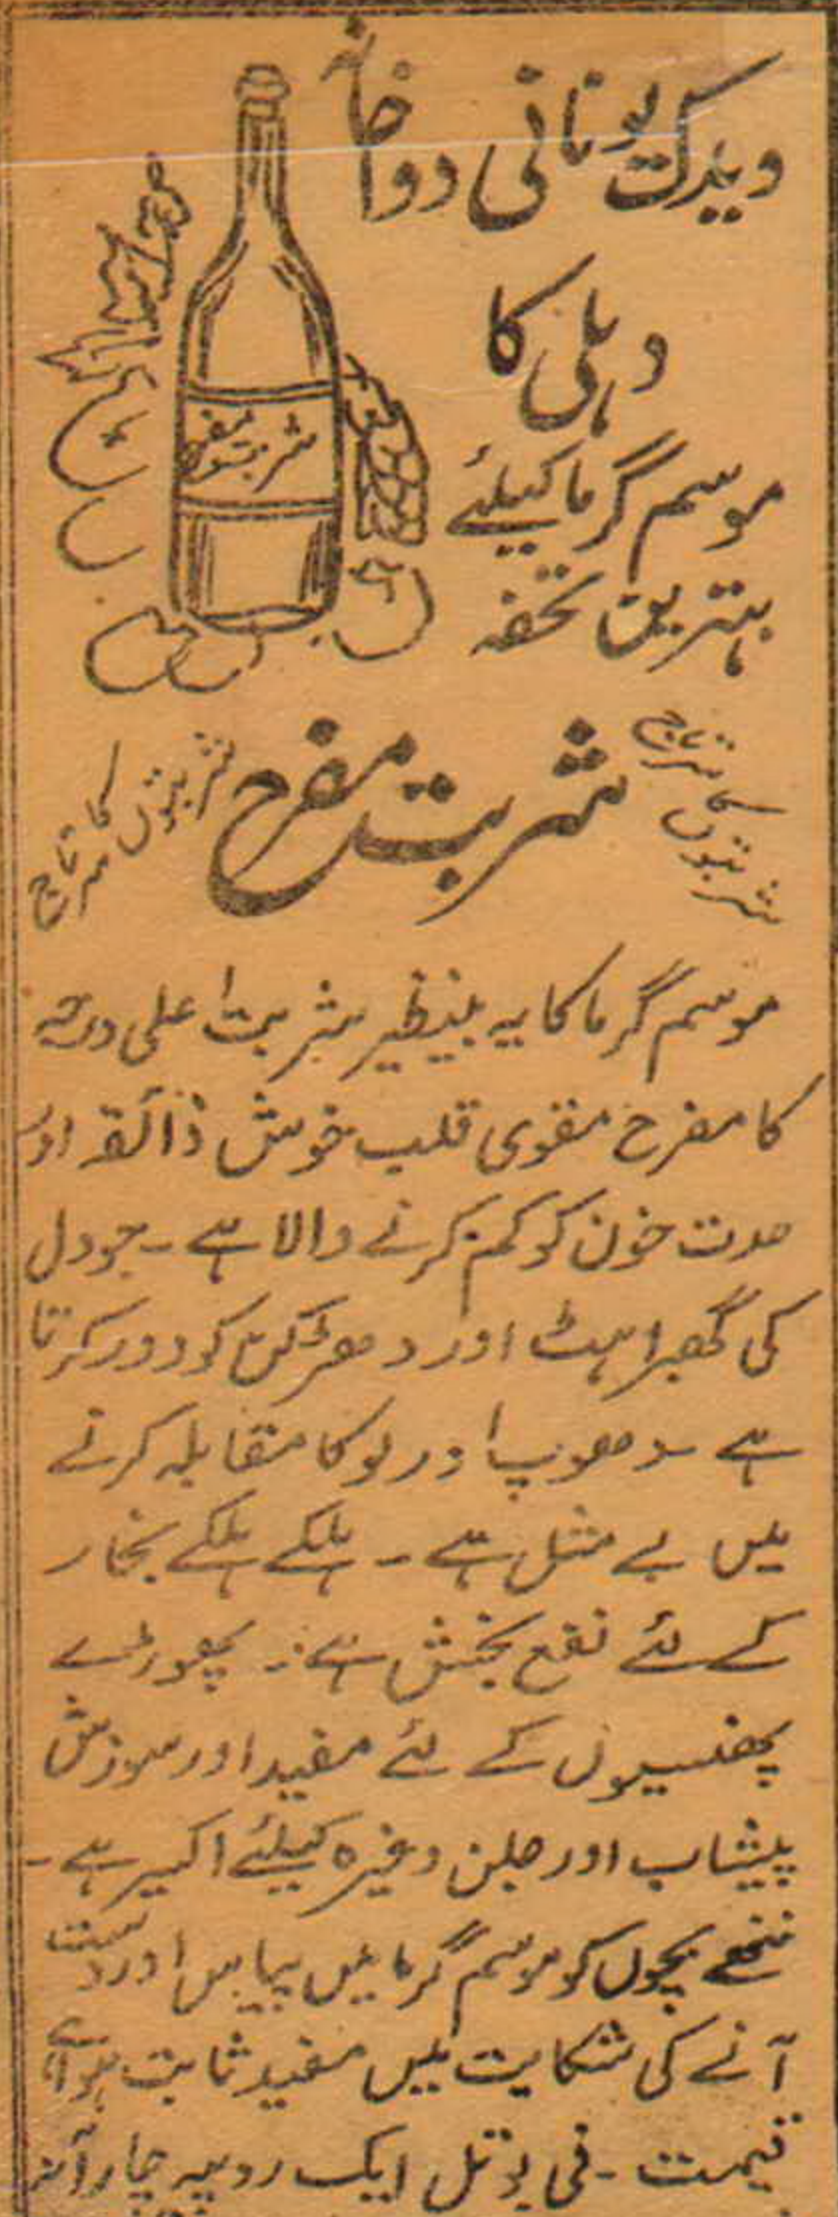 ویدک یونانی دواخانہ
دہلی کا
موسم گرما کیلئے
بہترین تحفہ
شربت مفرح
شربتوں کا سرتاج
شربت مفرح
شربتوں کا سرتاج
موسم گرما کا یہ بینظیر شربت اعلی درجہ
کا مفرح مقوی قلب خوش ذائقہ اور
حدت خون کو کم کرنے والا ہے - جو دل
کی گھبراہٹ اور دھڑکن کو دور کرتا
ہے - دھوپ اور لو کا مقابلہ کرنے
میں بے مثل ہے - ہلکے ہلکے بخار
کے لئے نفع بخش ہے :- پھوڑے
پھنسیوں کے لئے مفید اور سوزش
پیشاب اور جلن وغیرہ کیلئے اکسیر ہے -
ننھے بچوں کو موسم گرما میں پیاس اور دست
آنے کی شکایت میں مفید ثابت ہوا ہے
قیمت - فی بوتل ایک روپیہ چار آنہ